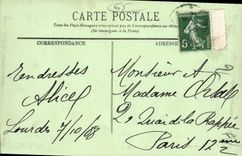 CARTE POSTALE
Tous les Pays étrangers n'acceptent pas la Correspondance au
(Se renseigner à la Poste)
CORRESPONDANCE
ADRESSE
5
Tendresses
Alice
Lourdes 7/10/08
Monsieur &
Madame
2 Quai de la Rapée
Paris 12eme